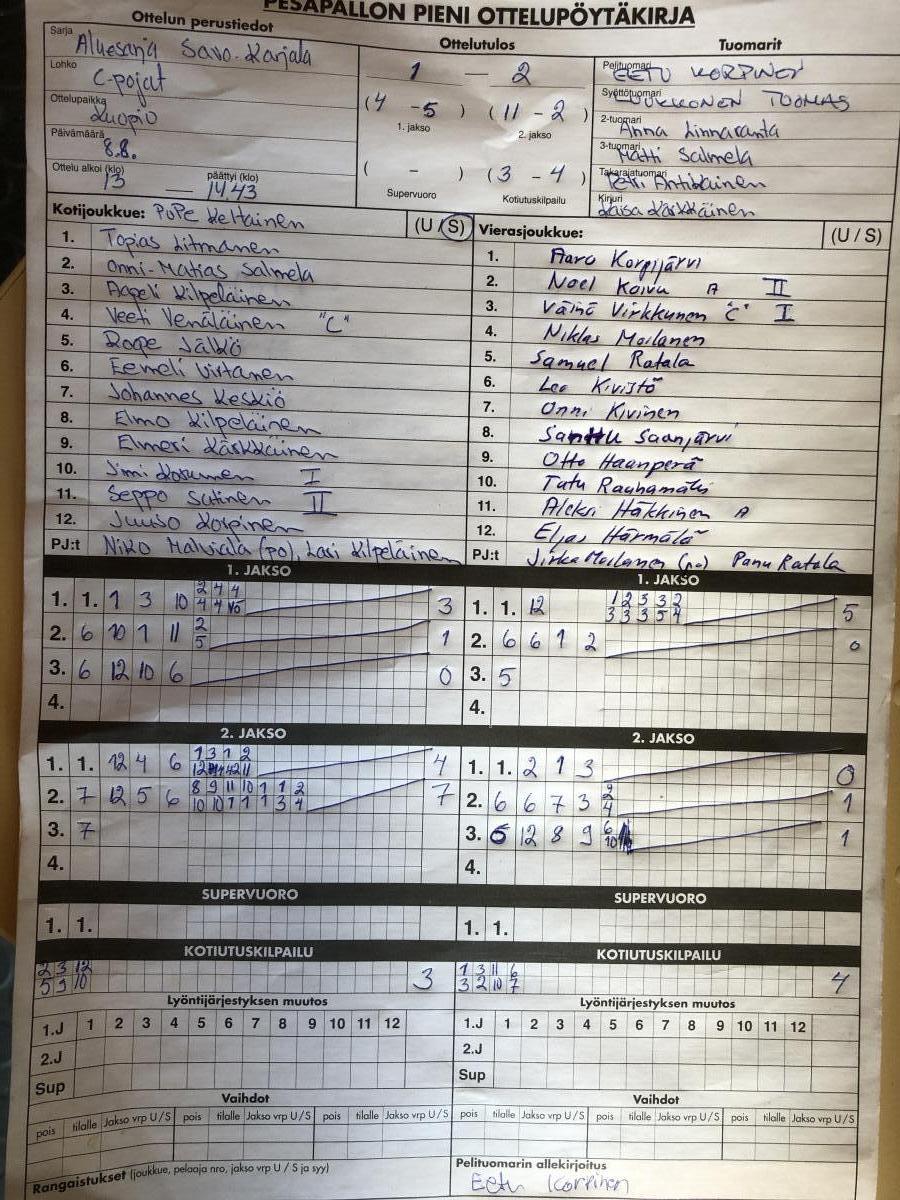 PESÄPALLON PIENI OTTELUPÖYTÄKIRJA
Ottelun perustiedot
Sarja Aluesarja Savo-Karjala
Lohko C-pojat
Ottelupaikka Kuopio
Päivämäärä 8.8.
Ottelu alkoi (klo) 13 — päättyi (klo) 14.43
Ottelutulos
1 — 2
(4 - 5) (11 - 2)
1. jakso 2. jakso
( - ) (3 - 4)
Supervuoro Kotiutuskilpailu
Tuomarit
Pelituomari EETU KORPINEN
Syöttötuomari LUUKKONEN TUOMAS
2-tuomari Anna Linnaranta
3-tuomari Matti Salmela
Takarajatuomari Petri Antikainen
Kirjuri Kaisa Kärkkäinen
Kotijoukkue: PuPe Keltainen (U / S)
1. Topias Litmanen
2. Onni-Matias Salmela
3. Aapeli Kilpeläinen
4. Veeti Venäläinen "C"
5. Roope Jälkö
6. Eemeli Virtanen
7. Johannes Keskiö
8. Elmo Kilpeläinen
9. Elmeri Kärkkäinen
10. Jimi I
11. Seppo Sutinen II
12. Juuso Korpinen
PJ:t Niko (po), Lari Kilpeläinen
Vierasjoukkue: (U / S)
1. Aaro Korpijärvi
2. Noel Koivu A II
3. Väinö Virkkunen "C" I
4. Niklas Moilanen
5. Samuel Ratala
6. Leo Kivistö
7. Onni Kivinen
8. Santtu Saarijärvi
9. Otto Haanperä
10. Tatu Rauhamäki
11. Aleksi Häkkinen A
12. Elias Härmälä
PJ:t Jirka Moilanen (po) Panu Ratala
1. JAKSO
1. 1. 1 3 10 2 4 4 3
4 4 10
2. 6 10 1 11 2 1
5
3. 6 12 10 6 0
4.
1. JAKSO
1. 1. 12 1 2 5 3 2 5
3 3 3 5 4
2. 6 6 1 2 0
3. 5
4.
2. JAKSO
1. 1. 12 4 6 1 3 1 2 4
2. 7 12 5 6 8 9 11 10 1 1 2 7
10 10 1 1 1 3 4
3. 7
4.
2. JAKSO
1. 1. 2 1 3 0
2. 6 6 7 3 2 1
4
3. 6 12 8 9 6 1
10
4.
SUPERVUORO
1. 1.
SUPERVUORO
1. 1.
KOTIUTUSKILPAILU
2 3 12 3
5 9 10
KOTIUTUSKILPAILU
1 3 11 6 4
3 2 10 7
Lyöntijärjestyksen muutos
1.J 1 2 3 4 5 6 7 8 9 10 11 12
2.J
Sup
Lyöntijärjestyksen muutos
1.J 1 2 3 4 5 6 7 8 9 10 11 12
2.J
Sup
Vaihdot
pois tilalle Jakso vrp U / S pois tilalle Jakso vrp U / S pois tilalle Jakso vrp U / S
Vaihdot
pois tilalle Jakso vrp U / S pois tilalle Jakso vrp U / S pois tilalle Jakso vrp U / S
Rangaistukset (joukkue, pelaaja nro, jakso vrp U / S ja syy)
Pelituomarin allekirjoitus
Eetu Korpinen